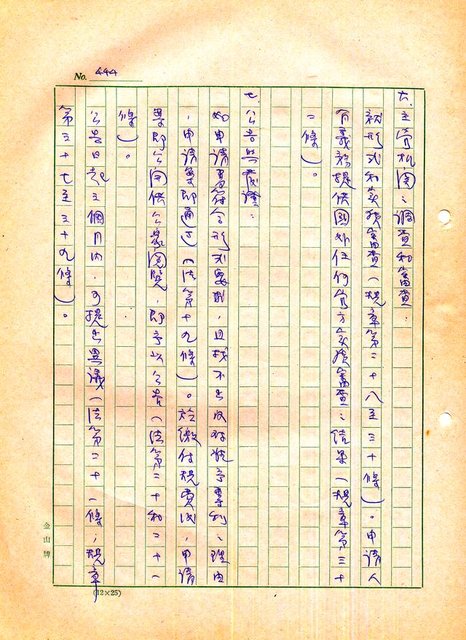 No. 444
六.主管机関之調查和審查:
就形式和實質審查(規章第二十八至三十條)。申請人
有義務提供國外任何官方實質審查之結果(規章第三十
一條)。
七.公告與異議:
如申請書符合形式要則,且找不出反對给予專利之理由
,申請案即通過(法第十九條)。於繳付規費後,申請
案即公開供公眾閱覽,即予以公告(法第二十和二十一
條)。
公告日起三個月內,可提出異議(法第二十一條,規章
第三十七至三十九條)。
金山牌
(12×25)